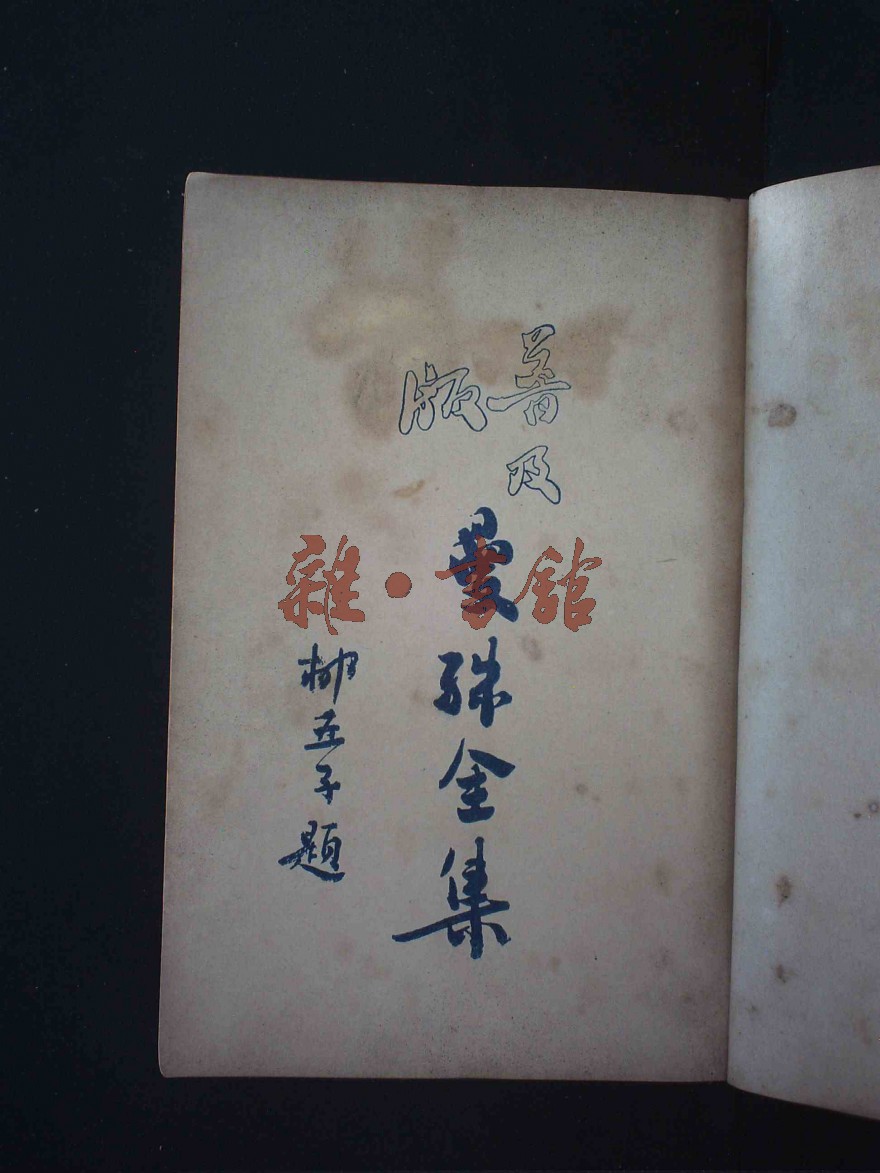 普及
版
曼殊全集
柳亞子題
雜·書館